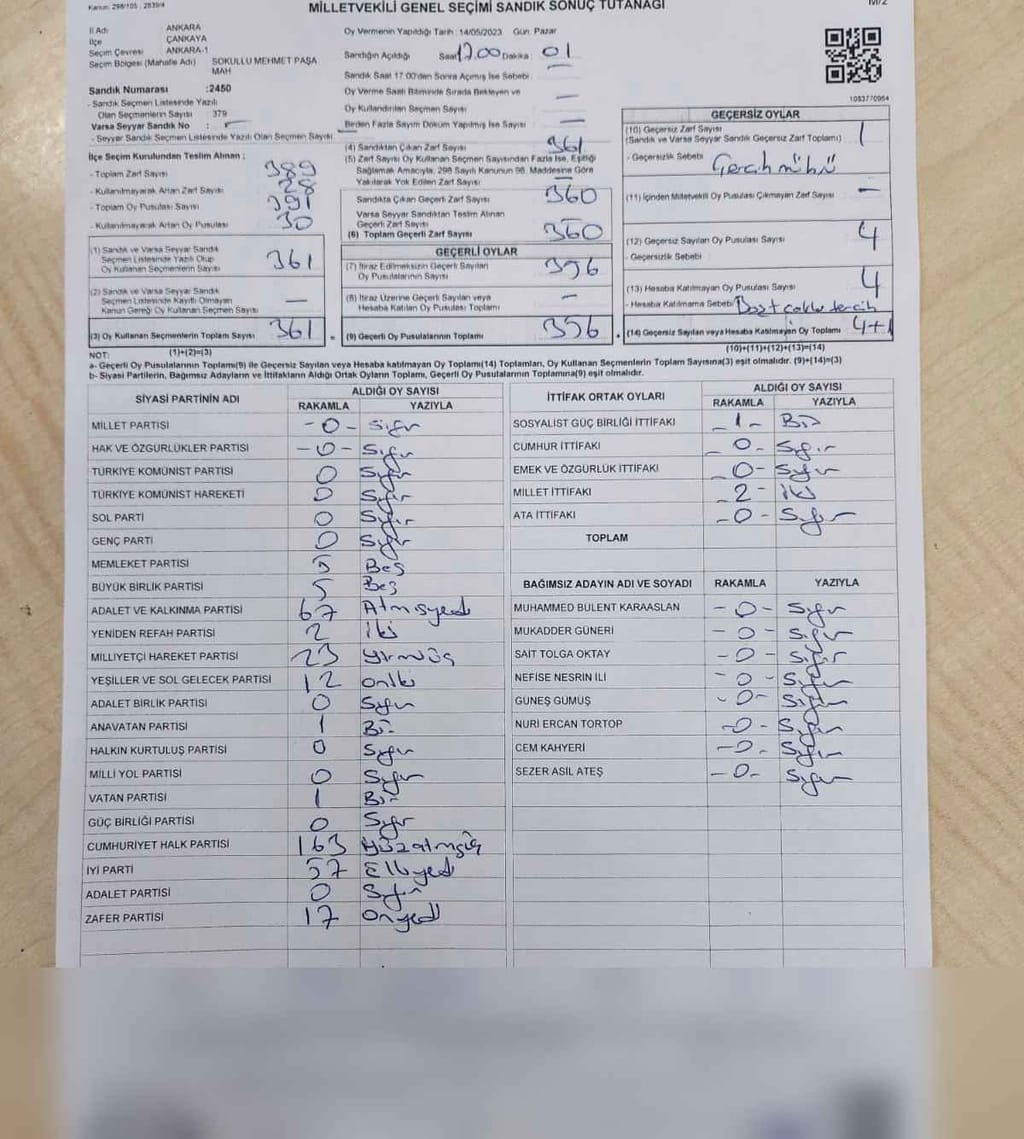 Kanun: 298/105 ; 2839/4
MİLLETVEKİLİ GENEL SEÇİMİ SANDIK SONUÇ TUTANAĞI
M/2
İl Adı ANKARA
İlçe ÇANKAYA
Seçim Çevresi ANKARA-1
Seçim Bölgesi (Mahalle Adı) SOKULLU MEHMET PAŞA
MAH
Sandık Numarası :2450
- Sandık Seçmen Listesinde Yazılı
Olan Seçmenlerin Sayısı 379
Varsa Seyyar Sandık No : -
- Seyyar Sandık Seçmen Listesinde Yazılı Olan Seçmen Sayısı -
Oy Vermenin Yapıldığı Tarih 14/05/2023 Gün Pazar
Sandığın Açıldığı Saat 17.00 Dakika 01
Sandık Saat 17.00'den Sonra Açılmış İse Sebebi -
Oy Verme Saati Bitiminde Sırada Bekleyen ve
Oy Kullandırılan Seçmen Sayısı -
Birden Fazla Sayım Döküm Yapılmış İse Sayısı -
1053770964
İlçe Seçim Kurulundan Teslim Alınan :
- Toplam Zarf Sayısı 389
- Kullanılmayarak Artan Zarf Sayısı 28
- Toplam Oy Pusulası Sayısı 391
- Kullanılmayarak Artan Oy Pusulası 30
(1) Sandık ve Varsa Seyyar Sandık
Seçmen Listesinde Yazılı Olup
Oy Kullanan Seçmenlerin Sayısı 361
(2) Sandık ve Varsa Seyyar Sandık
Seçmen Listesinde Kayıtlı Olmayan
Kanun Gereği Oy Kullanan Seçmen Sayısı -
(3) Oy Kullanan Seçmenlerin Toplam Sayısı 361
(1)+(2)=(3)
(4) Sandıktan Çıkan Zarf Sayısı 361
(5) Zarf Sayısı Oy Kullanan Seçmen Sayısından Fazla İse, Eşitliği
Sağlamak Amacıyla, 298 Sayılı Kanunun 98. Maddesine Göre
Yakılarak Yok Edilen Zarf Sayısı -
Sandıkta Çıkan Geçerli Zarf Sayısı 360
Varsa Seyyar Sandıktan Teslim Alınan
Geçerli Zarf Sayısı
(6) Toplam Geçerli Zarf Sayısı 360
GEÇERLİ OYLAR
(7) İtiraz Edilmeksizin Geçerli Sayılan
Oy Pusulalarının Sayısı 356
(8) İtiraz Üzerine Geçerli Sayılan veya
Hesaba Katılan Oy Pusulası Toplamı -
= (9) Geçerli Oy Pusulalarının Toplamı 356
GEÇERSİZ OYLAR
(10) Geçersiz Zarf Sayısı
(Sandık ve Varsa Seyyar Sandık Geçersiz Zarf Toplamı) 1
- Geçersizlik Sebebi Tercih mührü
(11) İçinden Milletvekili Oy Pusulası Çıkmayan Zarf Sayısı -
(12) Geçersiz Sayılan Oy Pusulası Sayısı 4
- Geçersizlik Sebebi
(13) Hesaba Katılmayan Oy Pusulası Sayısı 4
- Hesaba Katılmama Sebebi
+ (14) Geçersiz Sayılan veya Hesaba Katılmayan Oy Toplamı 4+1
(10)+(11)+(12)+(13)=(14)
NOT:
a- Geçerli Oy Pusulalarının Toplamı(9) ile Geçersiz Sayılan veya Hesaba katılmayan Oy Toplamı(14) Toplamları, Oy Kullanan Seçmenlerin Toplam Sayısına(3) eşit olmalıdır. (9)+(14)=(3)
b- Siyasi Partilerin, Bağımsız Adayların ve İttifakların Aldığı Ortak Oyların Toplamı, Geçerli Oy Pusulalarının Toplamına(9) eşit olmalıdır.
SİYASİ PARTİNİN ADI ALDIĞI OY SAYISI
RAKAMLA YAZIYLA
MİLLET PARTİSİ -0- Sıfır
HAK VE ÖZGÜRLÜKLER PARTİSİ -0- Sıfır
TÜRKİYE KOMÜNİST PARTİSİ 0 Sıfır
TÜRKİYE KOMÜNİST HAREKETİ 0 Sıfır
SOL PARTİ 0 Sıfır
GENÇ PARTİ 0 Sıfır
MEMLEKET PARTİSİ 5 Beş
BÜYÜK BİRLİK PARTİSİ 5 Beş
ADALET VE KALKINMA PARTİSİ 67 Atmışyedi
YENİDEN REFAH PARTİSİ 2 iki
MİLLİYETÇİ HAREKET PARTİSİ 23 yirmüüç
YEŞİLLER VE SOL GELECEK PARTİSİ 12 oniki
ADALET BİRLİK PARTİSİ 0 Sıfır
ANAVATAN PARTİSİ 1 Bir
HALKIN KURTULUŞ PARTİSİ 0 Sıfır
MİLLİ YOL PARTİSİ 0 Sıfır
VATAN PARTİSİ 1 Bir
GÜÇ BİRLİĞİ PARTİSİ 0 Sıfır
CUMHURİYET HALK PARTİSİ 163 Yüzatmışüç
İYİ PARTİ 57 Elliyedi
ADALET PARTİSİ 0 Sıfır
ZAFER PARTİSİ 17 Onyedi
İTTİFAK ORTAK OYLARI ALDIĞI OY SAYISI
RAKAMLA YAZIYLA
SOSYALİST GÜÇ BİRLİĞİ İTTİFAKI -1- Bir
CUMHUR İTTİFAKI -0- Sıfır
EMEK VE ÖZGÜRLÜK İTTİFAKI -0- Sıfır
MİLLET İTTİFAKI -2- iki
ATA İTTİFAKI -0- Sıfır
TOPLAM
BAĞIMSIZ ADAYIN ADI VE SOYADI RAKAMLA YAZIYLA
MUHAMMED BÜLENT KARAASLAN -0- Sıfır
MUKADDER GÜNERİ -0- Sıfır
SAİT TOLGA OKTAY -0- Sıfır
NEFİSE NESRİN İLİ -0- Sıfır
GÜNEŞ GÜMÜŞ -0- Sıfır
NURİ ERCAN TORTOP -0- Sıfır
CEM KAHYERİ -0- Sıfır
SEZER ASİL ATEŞ -0- Sıfır